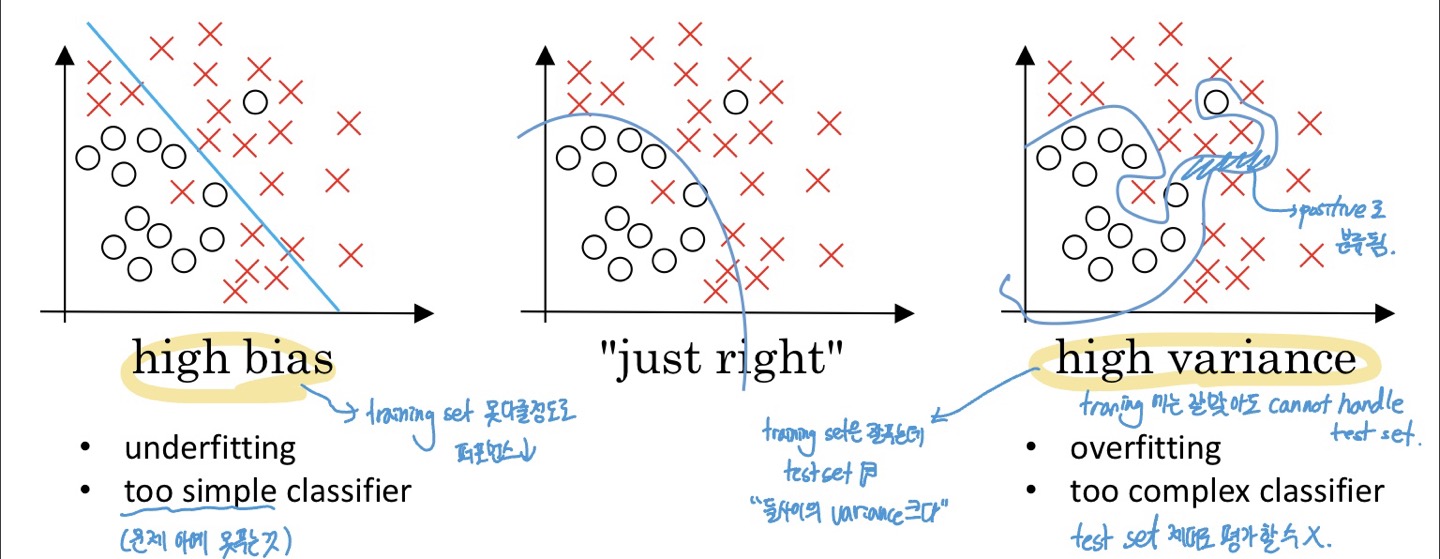 high bias
"just right"
high variance
→ training set 못다룰정도로
퍼포먼스↓
• underfitting
• too simple classifier
(문제 아예 못푸는 것)
training set은 잘푸는데
test set
"둘사이의 variance크다"
→ positive로
분류됨.
training 때는 잘맞아도 cannot handle
test set.
• overfitting
• too complex classifier
test set 제대로 평가할수 X.